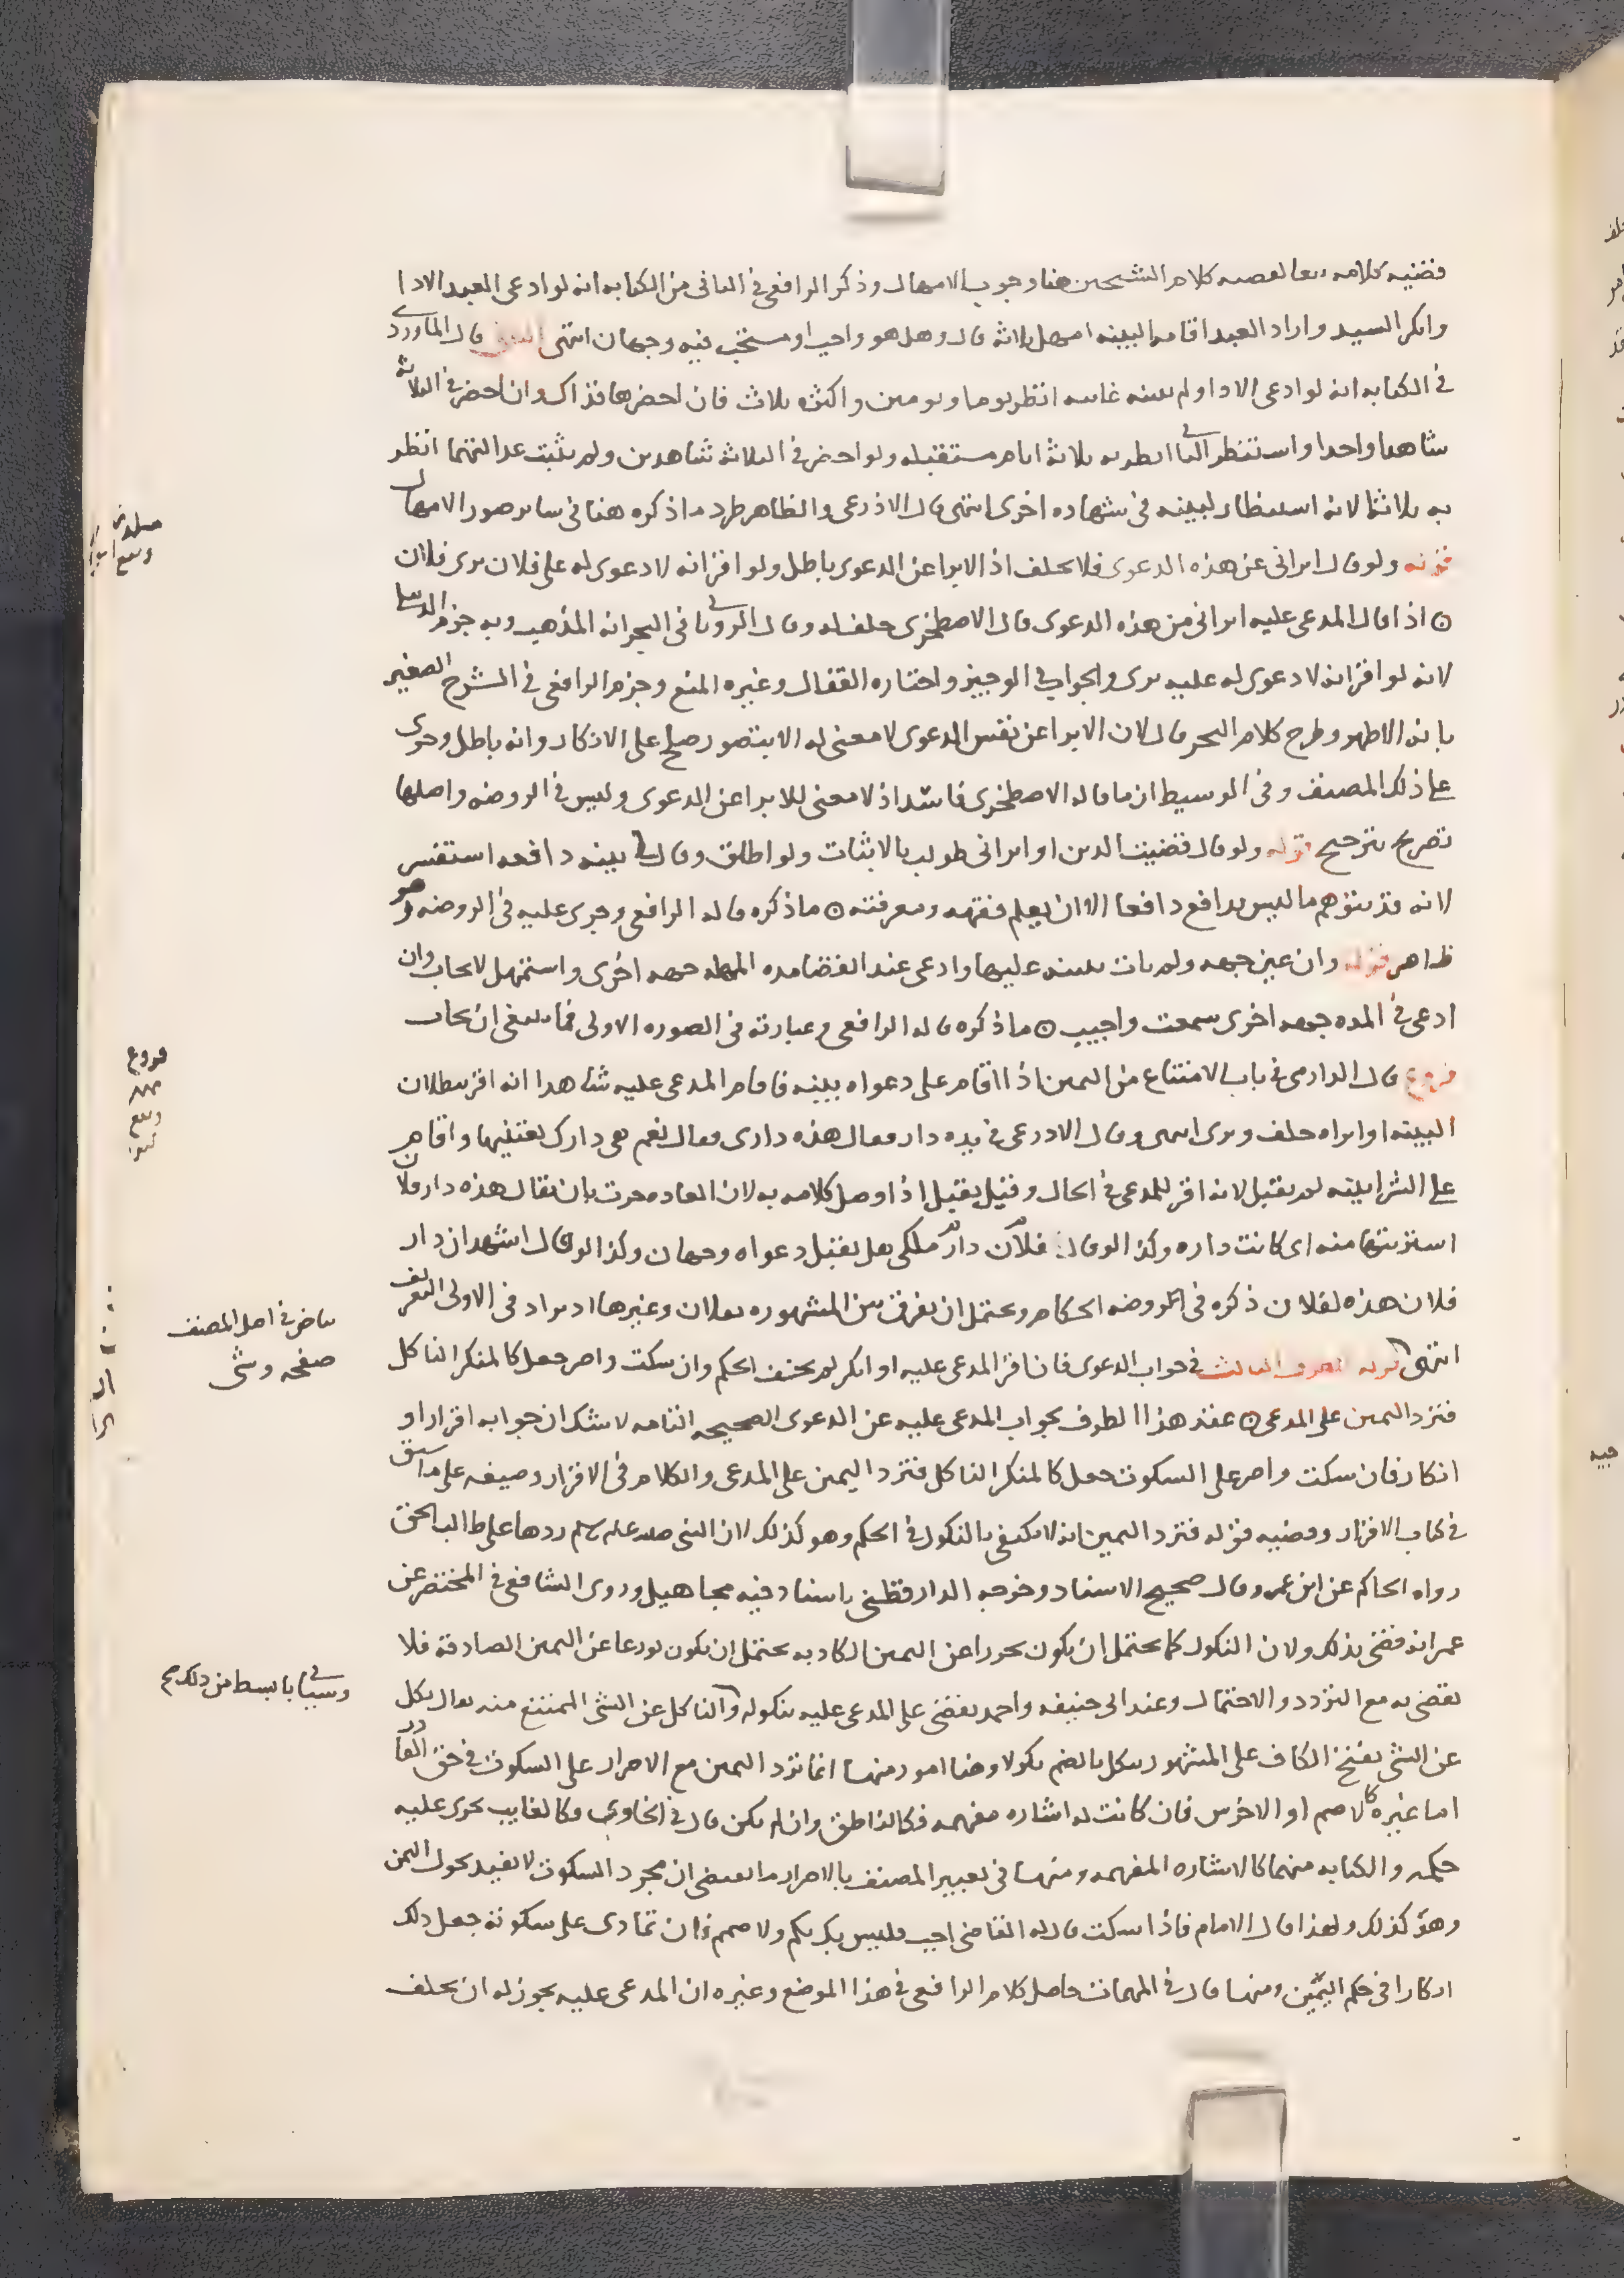 قضيه كلامه تبعا لقضيه كلام الشيخين هنا وجوب الامهال وذكر الرافعي في الثاني من الكتابه انه لو ادعى العبد الادا
وانكر السيد واراد العبد اقامه البينه امهل ثلاثه قال وهل هو واجب او مستحب فيه وجهان انتهى قال الماوردي
في الكتابه انه لو ادعى الادا وله بينه غايبه انظر يوما ويومين واكثره ثلاث فان احضرها فذاك وان احضر في الثلاثه
شاهدا واحدا واستنظر الثاني انظر به ثلاثه ايام مستقبله ولو احضر في الثلاثه شاهدين ولم يثبت عدالتهما انظر
به ثلاثا لانه استنظار لبينه في شهاده اخرى انتهى قال الاذرعي والظاهر طرد ما ذكره هنا في ساير صور الامهال
قوله ولو قال ابراني عن هذه الدعوى فلا يحلف اذ الابرا عن الدعوى باطل ولو اقر انه لا دعوى له على فلان برى فلان
۞ اذا قال المدعى عليه ابراني من هذه الدعوى قال الاصطخري حلف له وقال الروياني في البحر انه المذهب وبه جزم
لانه لو اقر انه لا دعوى له عليه برى والجواب في الوجيز واختاره القفال وغيره المنع وجزم الرافعي في الشرح الصغير
بانه الاظهر وطرح كلام البحر قال لان الابرا عن نفس الدعوى لا معنى له الا بتصور صلح على الانكار وانه باطل وجرى
على ذلك المصنف وفي الوسيط ان ما قاله الاصطخري فاسد اذ لا معنى للابرا عن الدعوى وليس في الروضه واصلها
تصريح بترجيح قوله ولو قال قضيت الدين او ابراني طولب بالاثبات ولو اطلق وقال لي بينه دافعه استفسر
لانه قد يتوهم ما ليس بدافع دافعا الا ان يعلم فقهه ومعرفته ۞ ما ذكره قاله الرافعي وجرى عليه في الروضه وهو
ظاهر قوله وان عين جهه ولم يات ببينه عليها وادعى عند انقضا مده المهله جهه اخرى واستمهل لا يجاب وان
ادعى في المده جهه اخرى سمعت واجيب ۞ ما ذكره قاله الرافعي وعبارته في الصوره الاولى فما ينبغي ان يجاب
فروع قال الدارمي في باب الامتناع من اليمين اذا اقام على دعواه بينه فاقام المدعى عليه شاهدا انه اقر ببطلان
البينه او ابراه حلف وبرى انتهى وقال الاذرعي في يده دار فقال هذه داري فقال نعم هي دارك بعتنيها واقام
على الشرا بينه لم يقبل لانه اقر للمدعى في الحال وقيل يقبل اذا وصل كلامه به لان العاده جرت بان يقال هذه دار فلان
اشتريتها منه اى كانت داره وكذا لو قال فلان دار ملكي هل يقبل دعواه وجهان وكذا لو قال اشهد ان دار
فلان هذه لفلان ذكره في روضه الحكام ويحتمل ان يفرق بين المشهوره بفلان وغيرها اذ يراد في الاولى التعريف
انتهى قوله الطرف الثالث في جواب الدعوى فان اقر المدعى عليه او انكر لم يخف الحكم وان سكت واصر جعل كالمنكر الناكل
فترد اليمين على المدعى ۞ عقد هذا الطرف لجواب المدعى عليه عن الدعوى الصحيحه التامه لا شك ان جوابه اقرار او
انكار فان سكت واصر على السكوت جعل كالمنكر الناكل فترد اليمين على المدعى والكلام في الاقرار وصيغه على ما سبق
في كتاب الاقرار وقضيه قوله فترد اليمين انه لا يكتفى بالنكول في الحكم وهو كذلك لان النبي صلى الله عليه وسلم ردها على طالب الحق
رواه الحاكم عن ابن عمر وقال صحيح الاسناد وخرجه الدارقطني باسناد فيه مجاهيل وروى الشافعي في المختصر عن
عمر انه قضى بذلك ولان النكول كما يحتمل ان يكون تحرزا عن اليمين الكاذبه يحتمل ان يكون تورعا عن اليمين الصادقه فلا
يقضى به مع التردد والاحتمال وعند ابي حنيفه واحمد يقضى على المدعى عليه بنكوله والناكل عن الشي الممتنع منه يقال نكل
عن الشي بفتح الكاف على المشهور ينكل بالضم نكولا وهنا امور منها انما ترد اليمين مع الاصرار على السكوت في حق القادر
اما غيره كالاصم او الاخرس فان كانت له اشاره مفهمه فكالناطق وان لم يكن قال في الحاوي فكالغايب يجرى عليه
حكمه والكتابه منهما كالاشاره المفهمه ومنها في تعبير المصنف بالاصرار ما يقتضي ان مجرد السكوت لا يفيد تحول اليمين
وهو كذلك ولهذا قال الامام فاذا سكت قال له القاضي اجب فليس بك بكم ولا صمم فان تمادى على سكوته جعل ذلك
انكارا في حكم اليمين ومنها قال في المهمات حاصل كلام الرافعي في هذا الموضع وغيره ان المدعى عليه يجوز له ان يحلف
فروع
بياض في اصل المصنف
صفحه وشي
وسياتي بابسط من ذلك صح